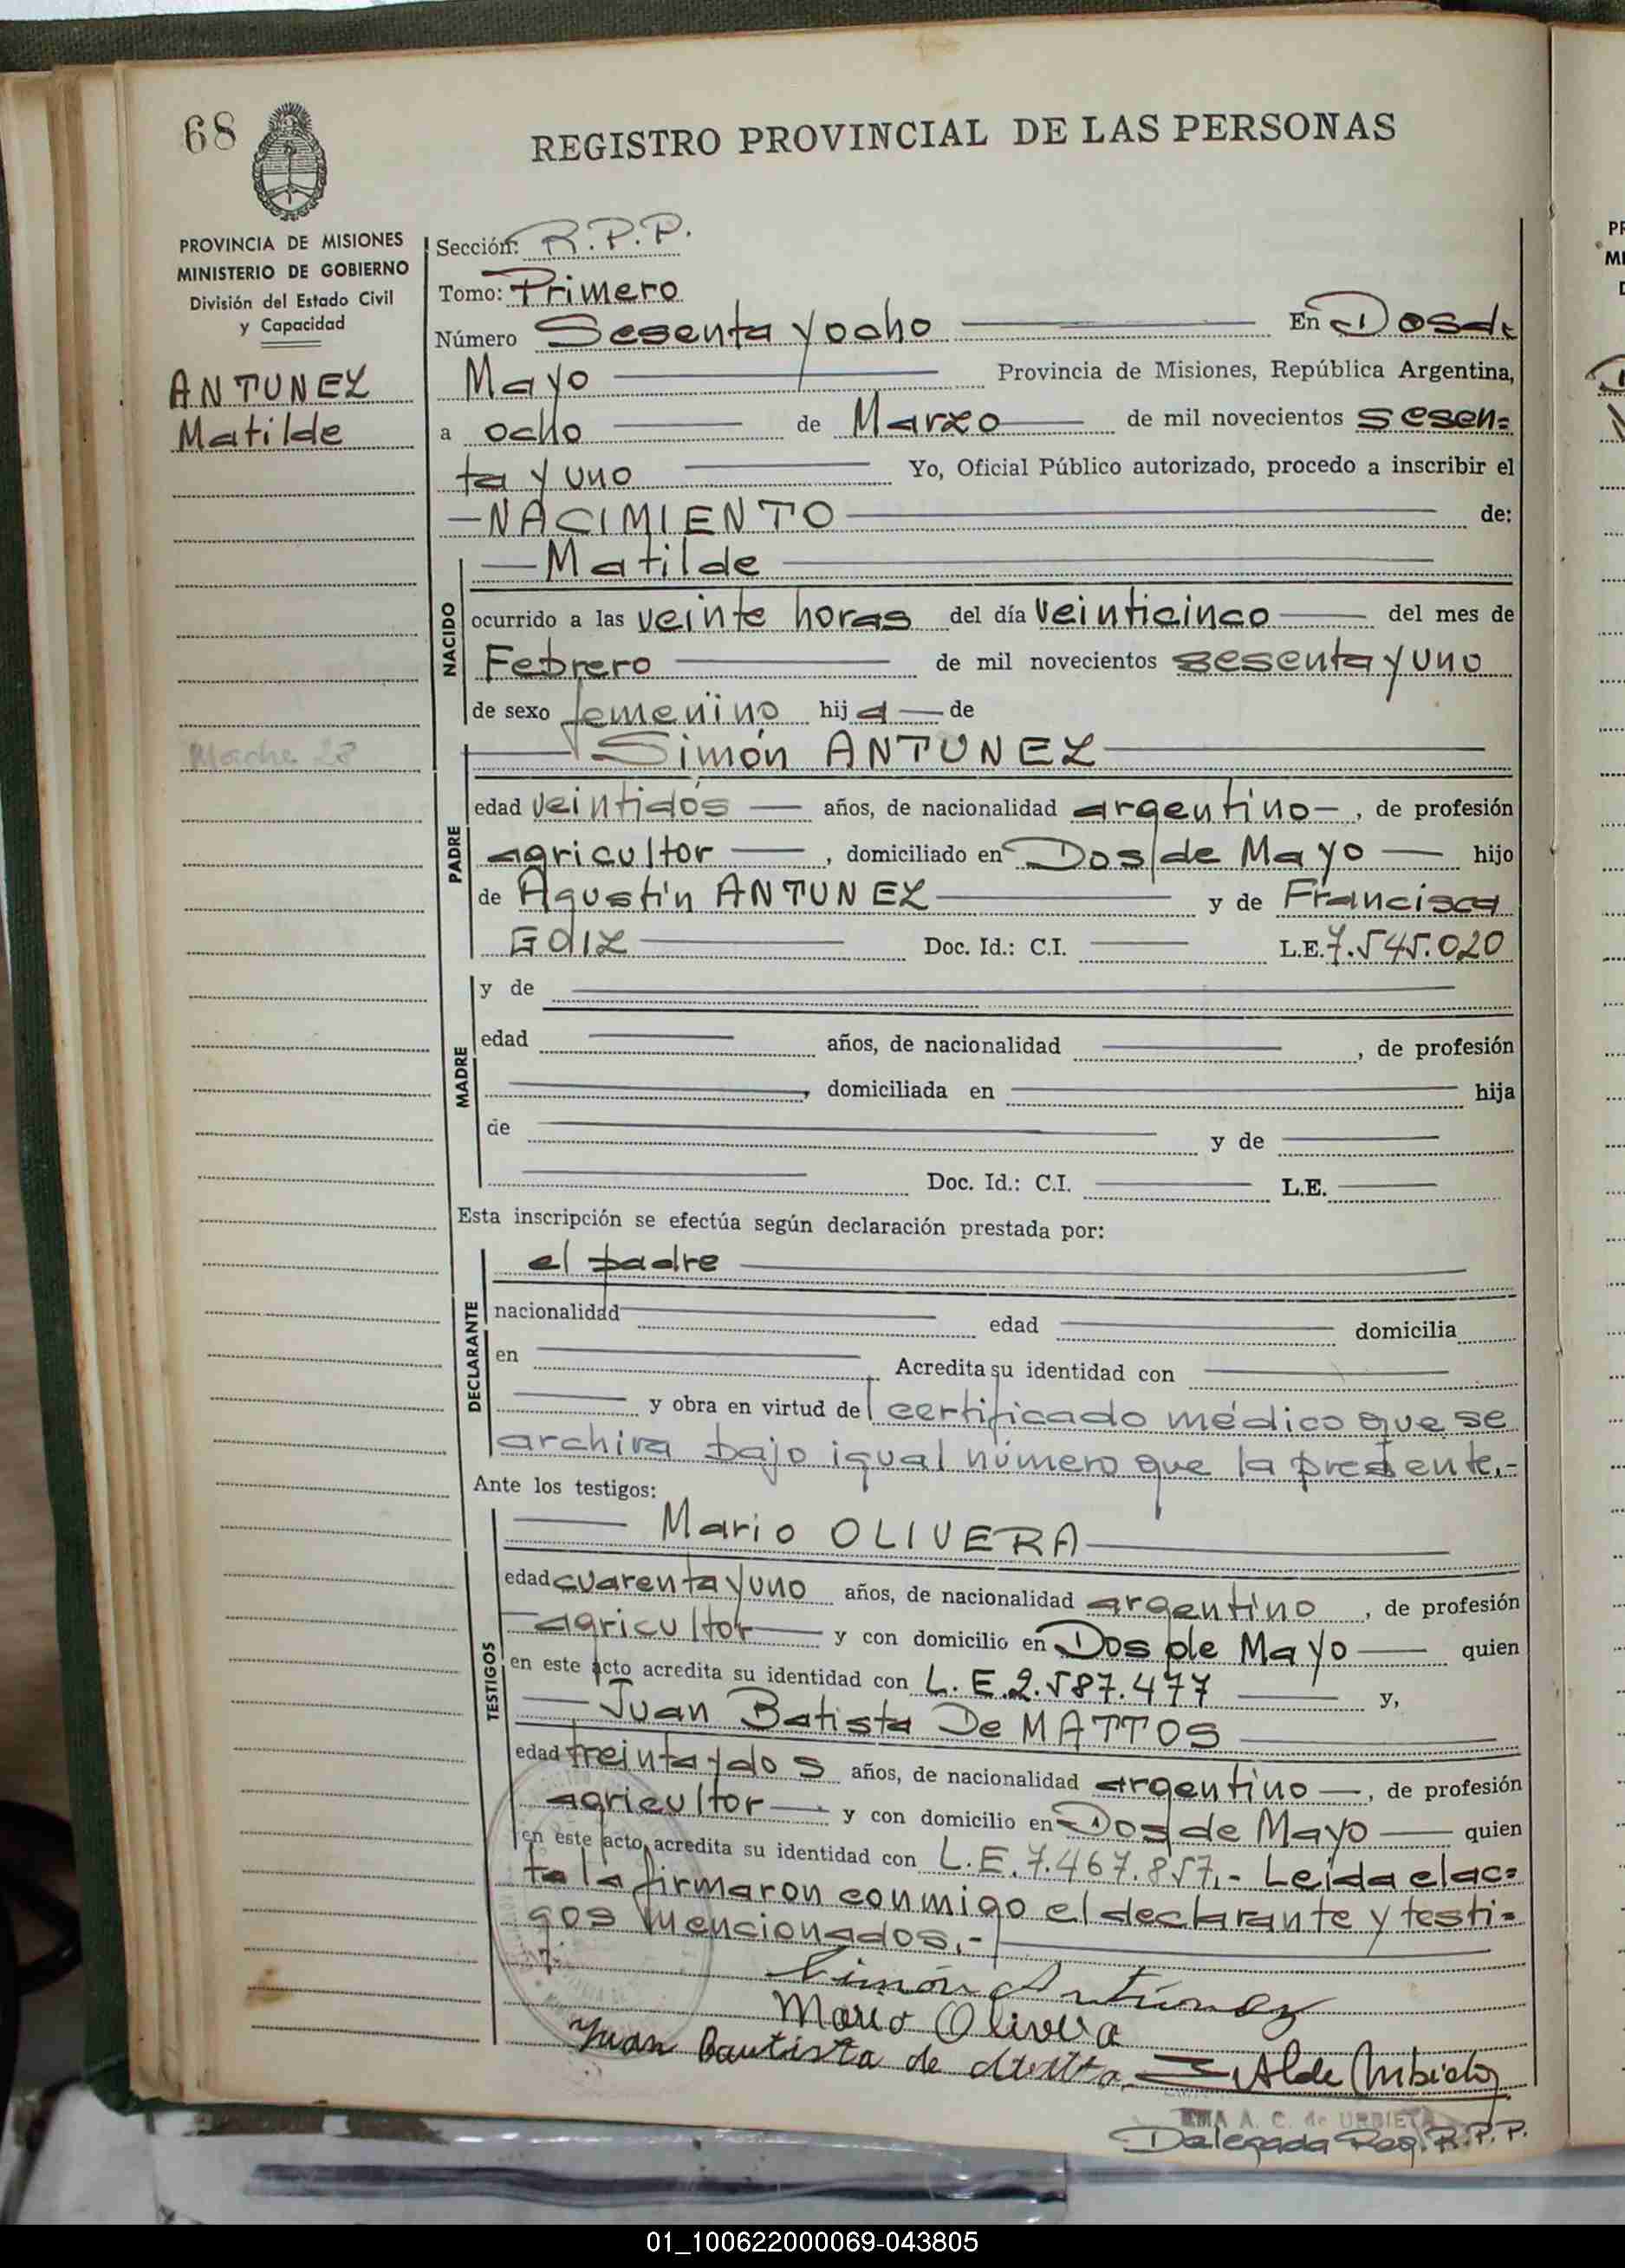 68
REGISTRO PROVINCIAL DE LAS PERSONAS
PROVINCIA DE MISIONES
MINISTERIO DE GOBIERNO
División del Estado Civil
y Capacidad
ANTUNEZ
Matilde
Sección: R.P.P.
Tomo: Primero
Número Sesenta y ocho En Dos de
Mayo Provincia de Misiones, República Argentina,
a ocho de Marzo de mil novecientos sesen=
ta y uno Yo, Oficial Público autorizado, procedo a inscribir el
—NACIMIENTO de:
NACIDO
—Matilde
ocurrido a las veinte horas del día veinticinco del mes de
Febrero de mil novecientos sesenta y uno
de sexo femenino hija de
PADRE
Simón ANTUNEZ
edad veintidós años, de nacionalidad argentino—, de profesión
agricultor —, domiciliado en Dos de Mayo — hijo
de Agustín ANTUNEZ y de Francisca
GOIZ Doc. Id.: C.I. L.E. 7.545.020
MADRE
y de
edad años, de nacionalidad , de profesión
, domiciliada en hija
de y de
Doc. Id.: C.I. L.E.
Esta inscripción se efectúa según declaración prestada por:
DECLARANTE
el padre
nacionalidad edad domicilia
en Acredita su identidad con
y obra en virtud del certificado médico que se
archiva bajo igual número que la presente.-
Ante los testigos:
TESTIGOS
Mario OLIVERA
edad cuarenta y uno años, de nacionalidad argentino , de profesión
agricultor y con domicilio en Dos de Mayo quien
en este acto acredita su identidad con L.E. 2.587.477 y,
Juan Batista De MATTOS
edad treinta y dos años, de nacionalidad argentino —, de profesión
agricultor — y con domicilio en Dos de Mayo quien
en este acto acredita su identidad con L.E. 7.467.857.- Leída el ac=
ta la firmaron conmigo el declarante y testi=
gos mencionados.-
Simón Antúnez
Mario Olivera
Juan Bautista de
A. C. de URBIETA
Delegada Reg. R.P.P.
01_100622000069-043805